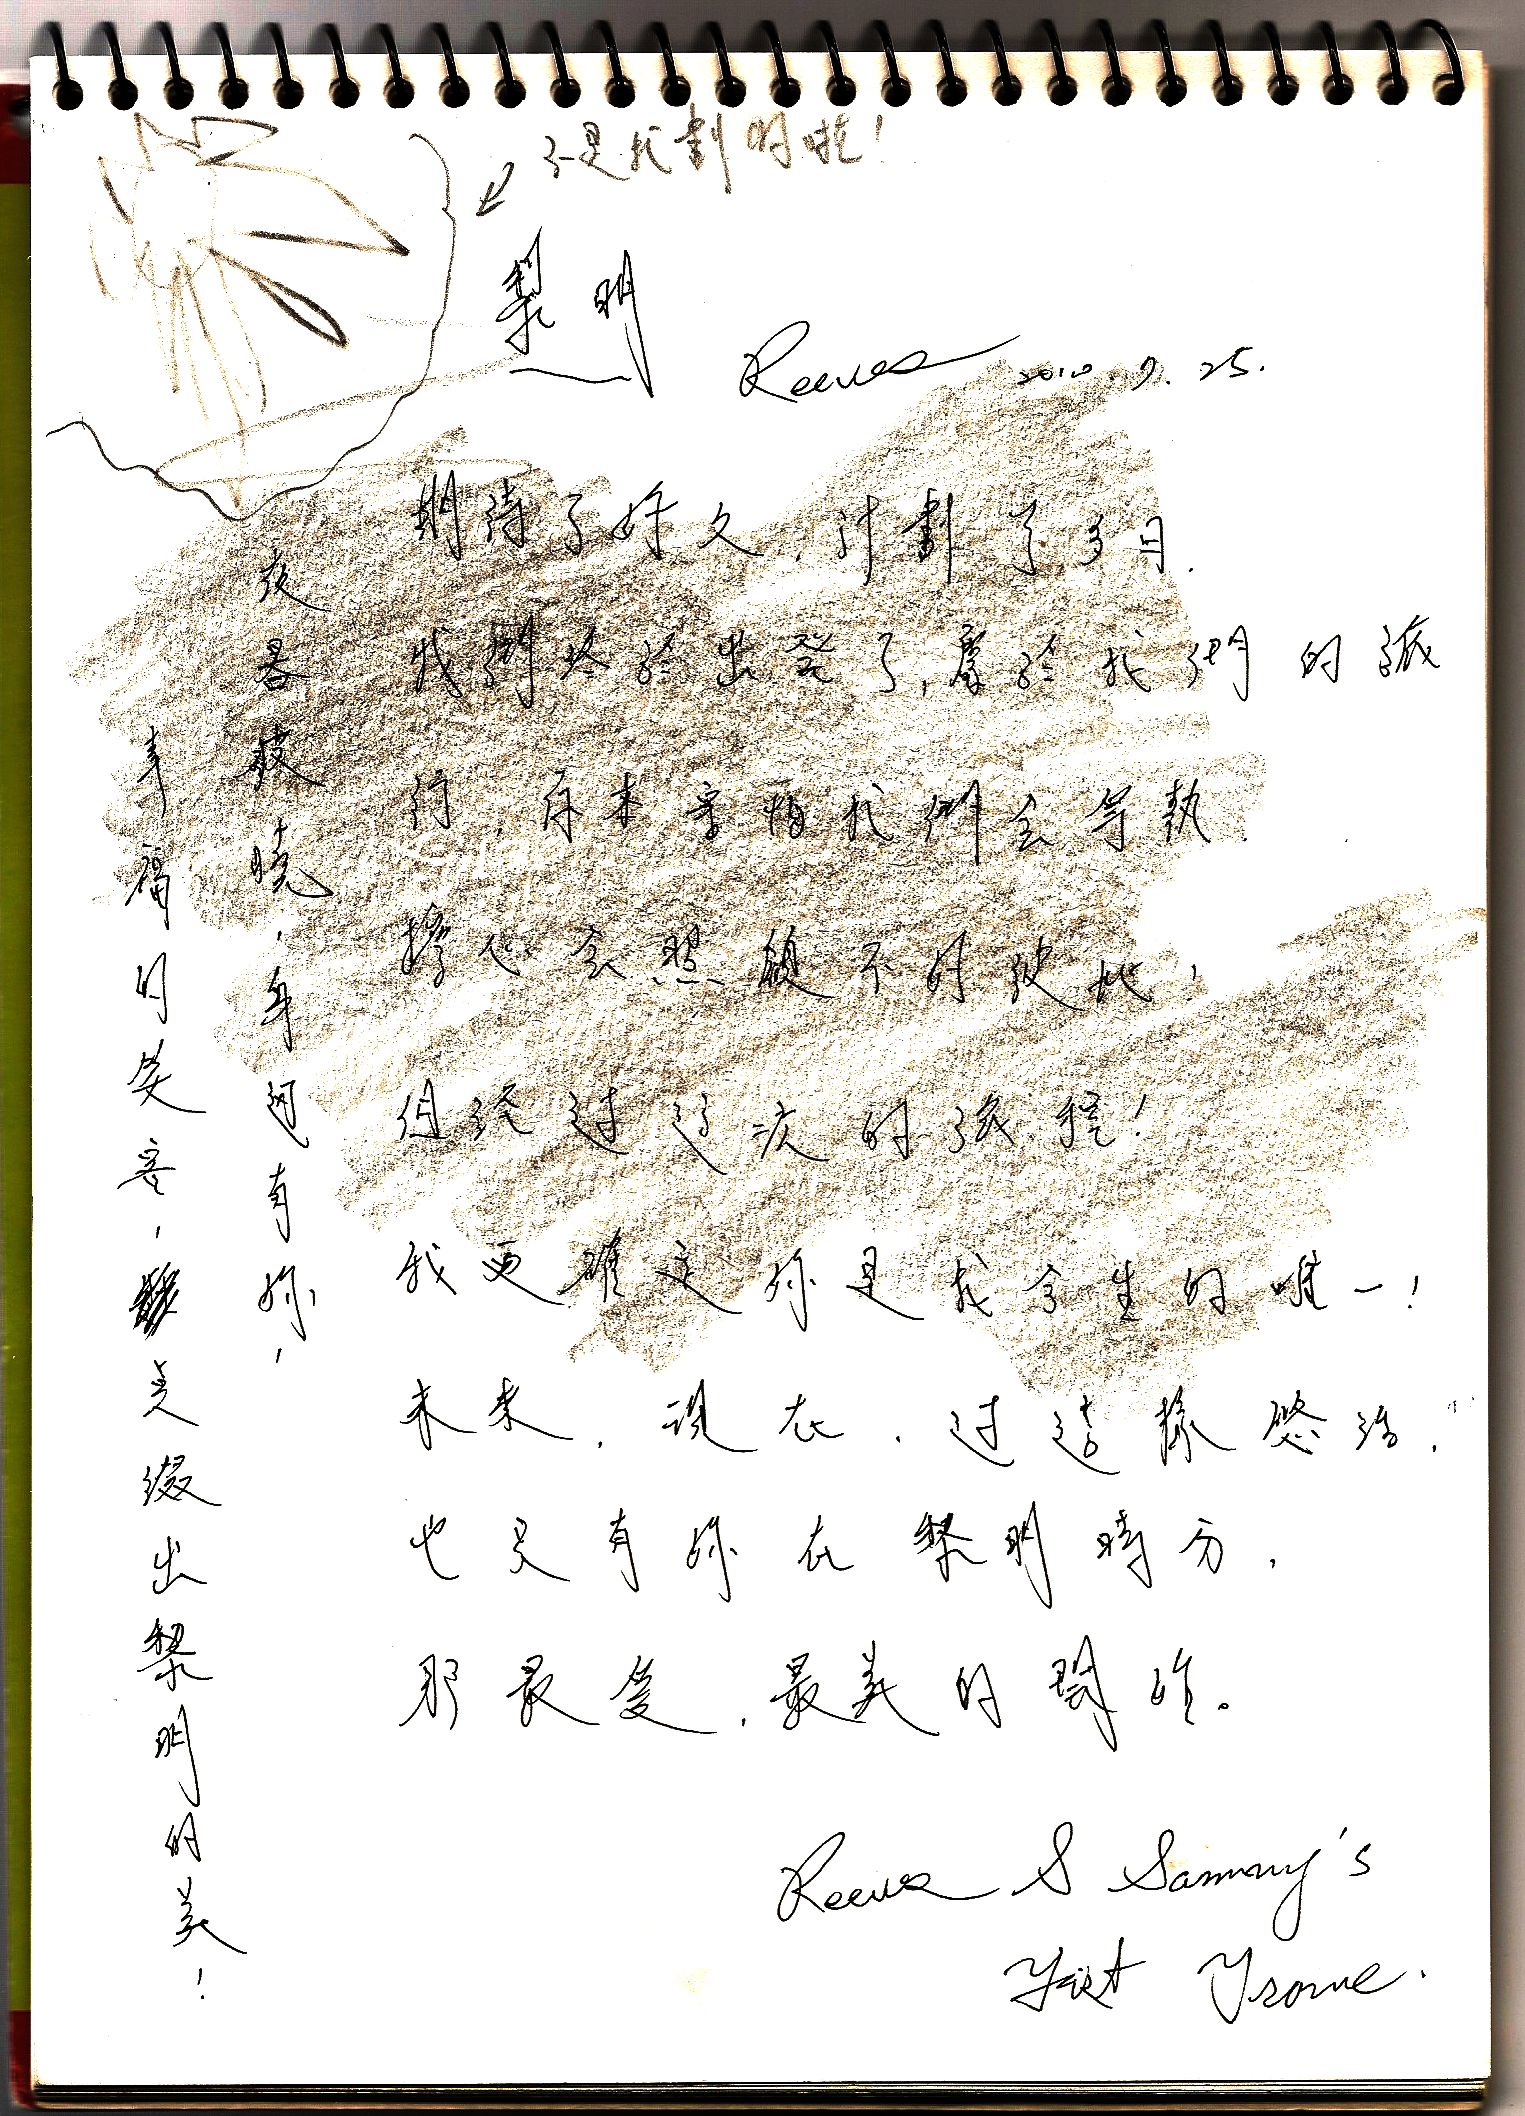 不是我劃的啦!
黎明
Reeves 2010.9.25.
期待了好久,計劃了多月.
我們終於出發了,屬於我們的旅
行,原來害怕我們會爭執.
擔心會照顧不的彼此,
但經過這次的旅程!
我更確定妳是我今生的唯一!
未來.現在.過這樣悠活.
也只有妳在黎明時分.
那最愛.最美的開始。
夜暮破曉,身迎有妳,
幸福的笑容,美綴出黎明的美!
Reeves & Sammy's
First